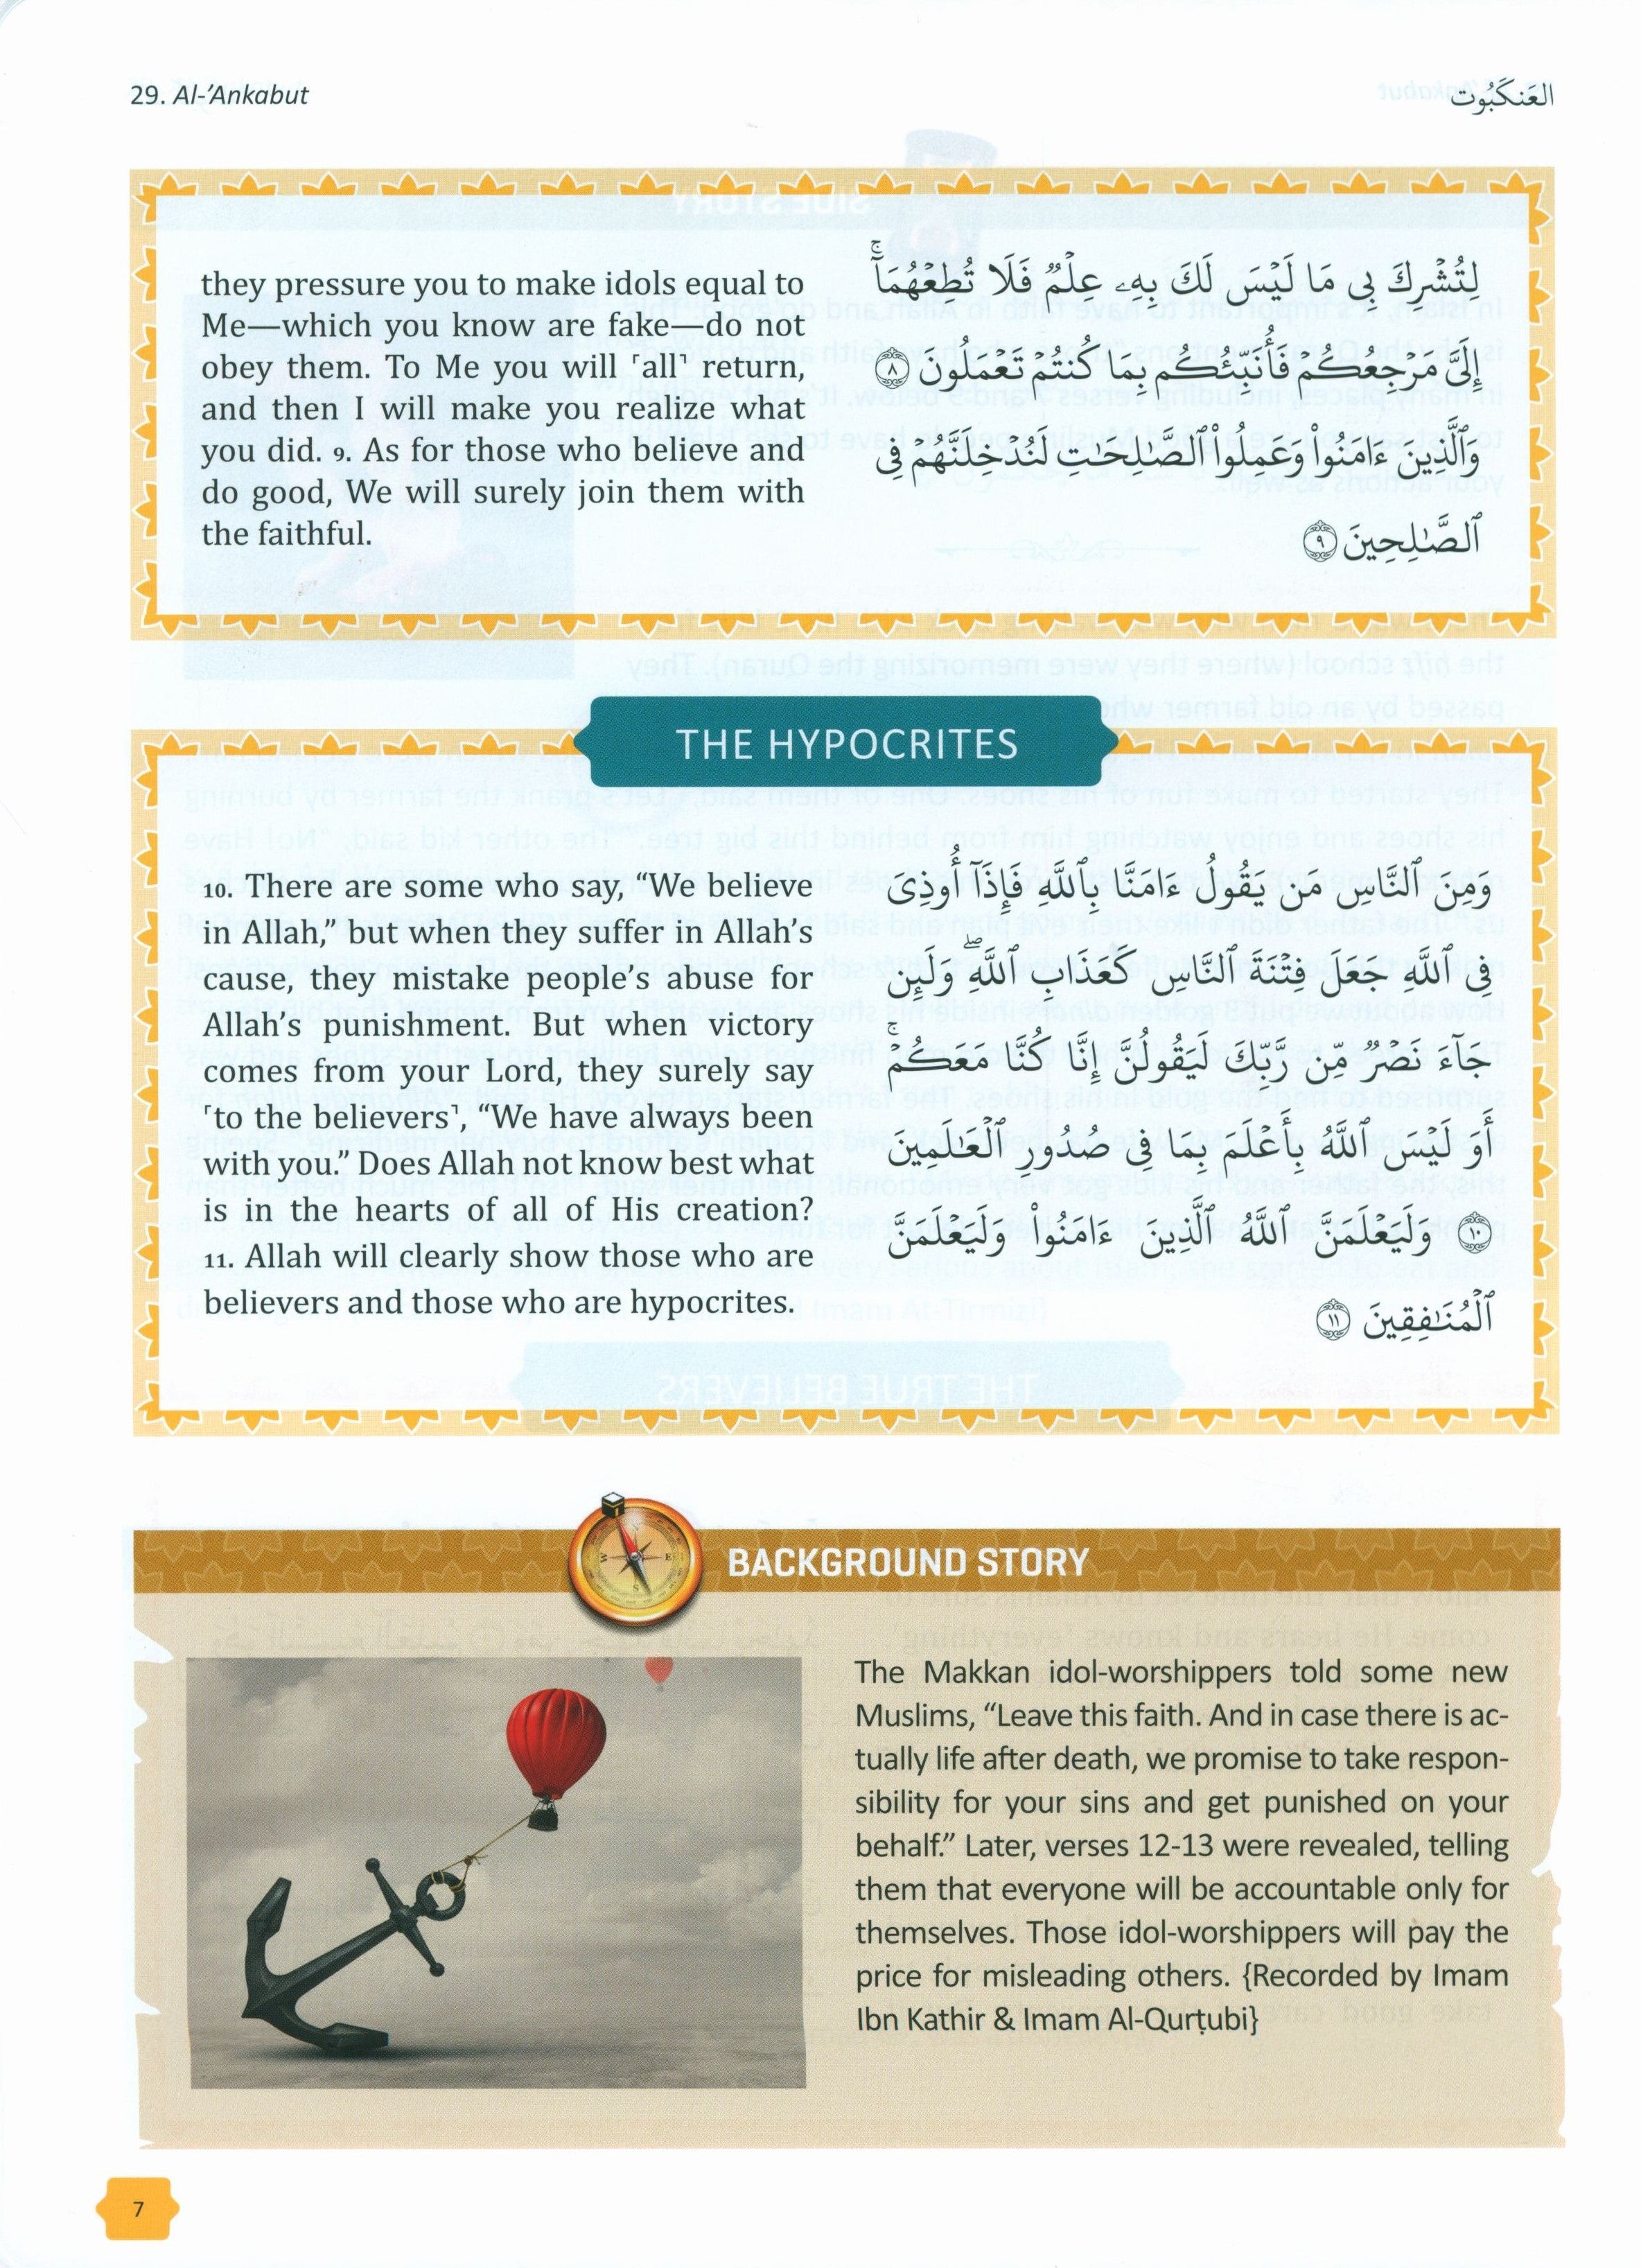 29. Al-’Ankabut
العَنكَبُوت
they pressure you to make idols equal to
Me—which you know are fake—do not
obey them. To Me you will ˹all˺ return,
and then I will make you realize what
you did. 9. As for those who believe and
do good, We will surely join them with
the faithful.
لِتُشْرِكَ بِى مَا لَيْسَ لَكَ بِهِۦ عِلْمٌ فَلَا تُطِعْهُمَآ ۚ
إِلَىَّ مَرْجِعُكُمْ فَأُنَبِّئُكُم بِمَا كُنتُمْ تَعْمَلُونَ ٨
وَٱلَّذِينَ ءَامَنُوا۟ وَعَمِلُوا۟ ٱلصَّـٰلِحَـٰتِ لَنُدْخِلَنَّهُمْ فِى
ٱلصَّـٰلِحِينَ ٩
THE HYPOCRITES
10. There are some who say, “We believe
in Allah,” but when they suffer in Allah’s
cause, they mistake people’s abuse for
Allah’s punishment. But when victory
comes from your Lord, they surely say
˹to the believers˺, “We have always been
with you.” Does Allah not know best what
is in the hearts of all of His creation?
11. Allah will clearly show those who are
believers and those who are hypocrites.
وَمِنَ ٱلنَّاسِ مَن يَقُولُ ءَامَنَّا بِٱللَّهِ فَإِذَآ أُوذِىَ
فِى ٱللَّهِ جَعَلَ فِتْنَةَ ٱلنَّاسِ كَعَذَابِ ٱللَّهِ ۖ وَلَئِن
جَآءَ نَصْرٌ مِّن رَّبِّكَ لَيَقُولُنَّ إِنَّا كُنَّا مَعَكُمْ ۚ
أَوَ لَيْسَ ٱللَّهُ بِأَعْلَمَ بِمَا فِى صُدُورِ ٱلْعَـٰلَمِينَ
١٠ وَلَيَعْلَمَنَّ ٱللَّهُ ٱلَّذِينَ ءَامَنُوا۟ وَلَيَعْلَمَنَّ
ٱلْمُنَـٰفِقِينَ ١١
BACKGROUND STORY
The Makkan idol-worshippers told some new
Muslims, “Leave this faith. And in case there is ac-
tually life after death, we promise to take respon-
sibility for your sins and get punished on your
behalf.” Later, verses 12-13 were revealed, telling
them that everyone will be accountable only for
themselves. Those idol-worshippers will pay the
price for misleading others. {Recorded by Imam
Ibn Kathir & Imam Al-Qurṭubi}
7